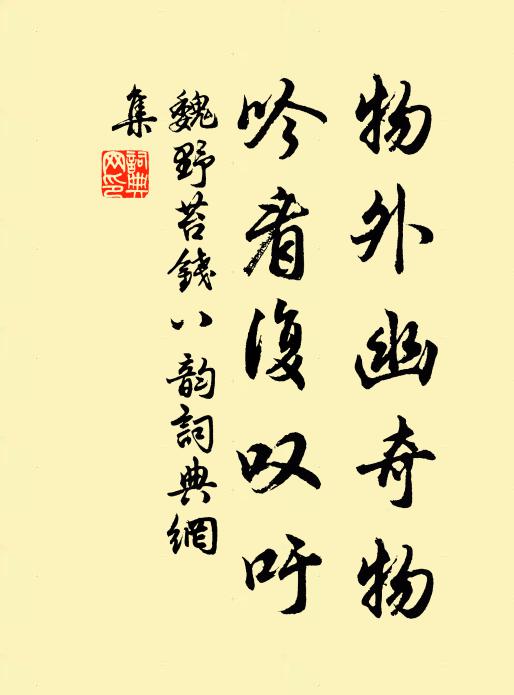 物外幽奇物
吟看復叹吁
魏野苔錢八韵詞典網
集
詞典
网印